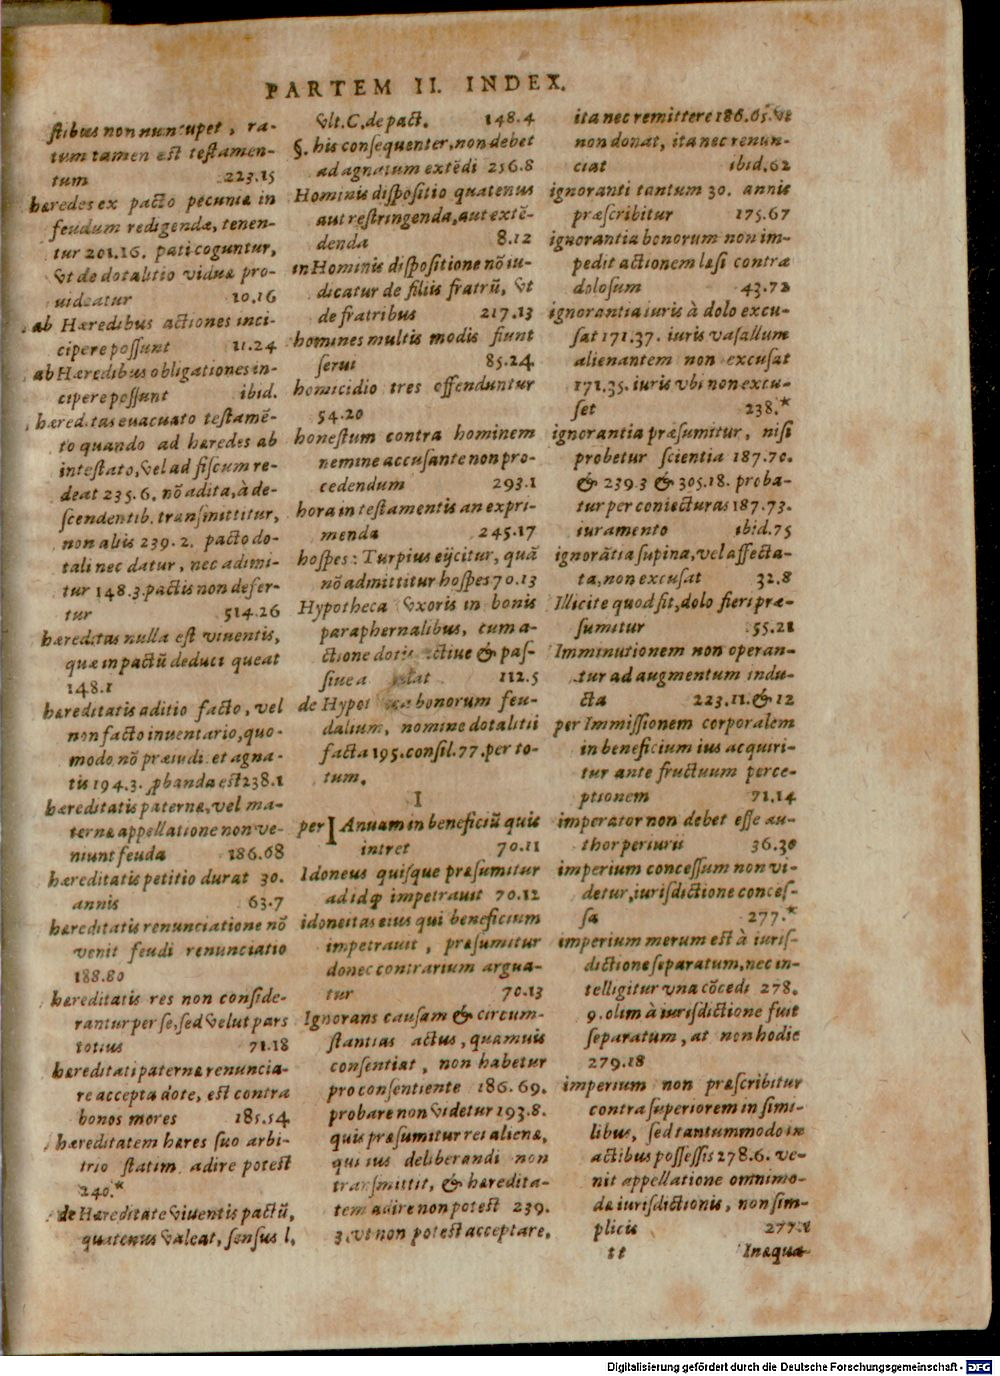 PARTEM II. INDEX.
ſtibus non nuncupet, ra-
tum tamen est testamen-
tum 223.15
hæredes ex pacto pecuniæ in
feudum redigendæ, tenen-
tur 201.16. pati coguntur,
vt de dotalitio viduæ pro-
uideatur 10.16
ab Hæredibus actiones inci-
cipere poſſunt 11.24
ab Hæredibus obligationes in-
cipere poſſunt ibid.
hæreditas euacuato testamē-
to quando ad hæredes ab
intestato, vel ad fiſcum re-
deat 235.6. nō adita, à de-
ſcendentib. tranſmittitur,
non aliis 239.2. pacto do-
tali nec datur, nec adimi-
tur 148.3. pactis non defer-
tur 514.26
hæreditas nulla est viuentis,
quæ in pactū deduci queat
148.1
hæreditatis aditio facto, vel
non facto inuentario, quo-
modo nō præiudi. et agna-
tis 194.3. ꝓbanda est 238.1
hæreditatis paternæ, vel ma-
ternæ appellatione non ve-
niunt feuda 186.68
hæreditatis petitio durat 30.
annis 63.7
hæreditatis renunciatione nō
venit feudi renunciatio
188.80
hæreditatis res non conſide-
rantur per ſe, ſed velut pars
totius 71.18
hæreditati paternæ renuncia-
re accepta dote, est contra
bonos mores 185.54
hæreditatem hæres ſuo arbi-
trio ſtatim adire potest
240.*
de Hæreditate viuentis pactū,
quatenus valeat, ſenſus l.
vlt. C. de pact. 148.4
§. his conſequenter, non debet
ad agnatum extēdi 256.8
Hominis diſpoſitio quatenus
aut reſtringenda, aut extē-
denda 8.12
in Hominis diſpoſitione nō iu-
dicatur de filiis fratrū, vt
de fratribus 217.13
homines multis modis fiunt
ſerui 85.24
homicidio tres offenduntur
54.20
honestum contra hominem
nemine accuſante non pro-
cedendum 293.1
hora in testamentis an expri-
menda 245.17
hoſpes: Turpius eijcitur, quā
nō admittitur hoſpes 70.13
Hypotheca vxoris in bonis
paraphernalibus, cum a-
ctione dotis actiue & paſ-
ſiue 112.5
de Hypotheca bonorum feu-
dalium, nomine dotalitii
facta 195. conſil. 77. per to-
tum.
I
per IAnuam in beneficiū quis
intret 70.11
Idoneus quiſque præſumitur
ad idq impetrauit 70.12
idoneitas eius qui beneficium
impetrauit, præſumitur
donec contrarium argua-
tur 70.13
Ignorans cauſam & circum-
ſtantias actus, quamuis
conſentiat, non habetur
pro conſentiente 186.69.
probare non videtur 193.8.
quis præſumitur rei alienæ,
qui ius deliberandi non
tranſmittit, & hæredita-
tem adire non potest 239.
3. vt non potest acceptare,
ita nec remittere 186.65. vt
non donat, ita nec renun-
ciat ibid. 62
ignoranti tantum 30. annis
præſcribitur 175.67
ignorantia bonorum non im-
pedit actionem læſi contra
doloſum 43.72
ignorantia iuris à dolo excu-
ſat 171.37. iuris vaſallum
alienantem non excuſat
171.35. iuris vbi non excu-
ſet 238.*
ignorantia præſumitur, niſi
probetur ſcientia 187.70.
& 239.3 & 305.18. proba-
tur per coniecturas 187.73.
iuramento ibid. 75
ignorātia ſupina, vel affecta-
ta, non excuſat 32.8
Illicite quod fit, dolo fieri præ-
ſumitur 55.21
Imminutionem non operan-
tur ad augmentum indu-
cta 223.11. & 12
per Immiſſionem corporalem
in beneficium ius acquiri-
tur ante fructuum perce-
ptionem 71.14
imperator non debet eſſe au-
thor periurii 36.30
imperium conceſſum non vi-
detur, iuriſdictione conceſ-
ſa 277.*
imperium merum est à iuriſ-
dictione ſeparatum, nec in-
telligitur vna cōcedi 278.
9. olim à iuriſdictione fuit
ſeparatum, at non hodie
279.18
imperium non præſcribitur
contra ſuperiorem in ſimi-
libus, ſed tantummodo in
actibus poſſeſſis 278.6. ve-
nit appellatione omnimo-
dæ iuriſdictionis, non ſim-
plicis 277.1
tt Inæqua-
Digitalisierung gefördert durch die Deutsche Forschungsgemeinschaft - DFG